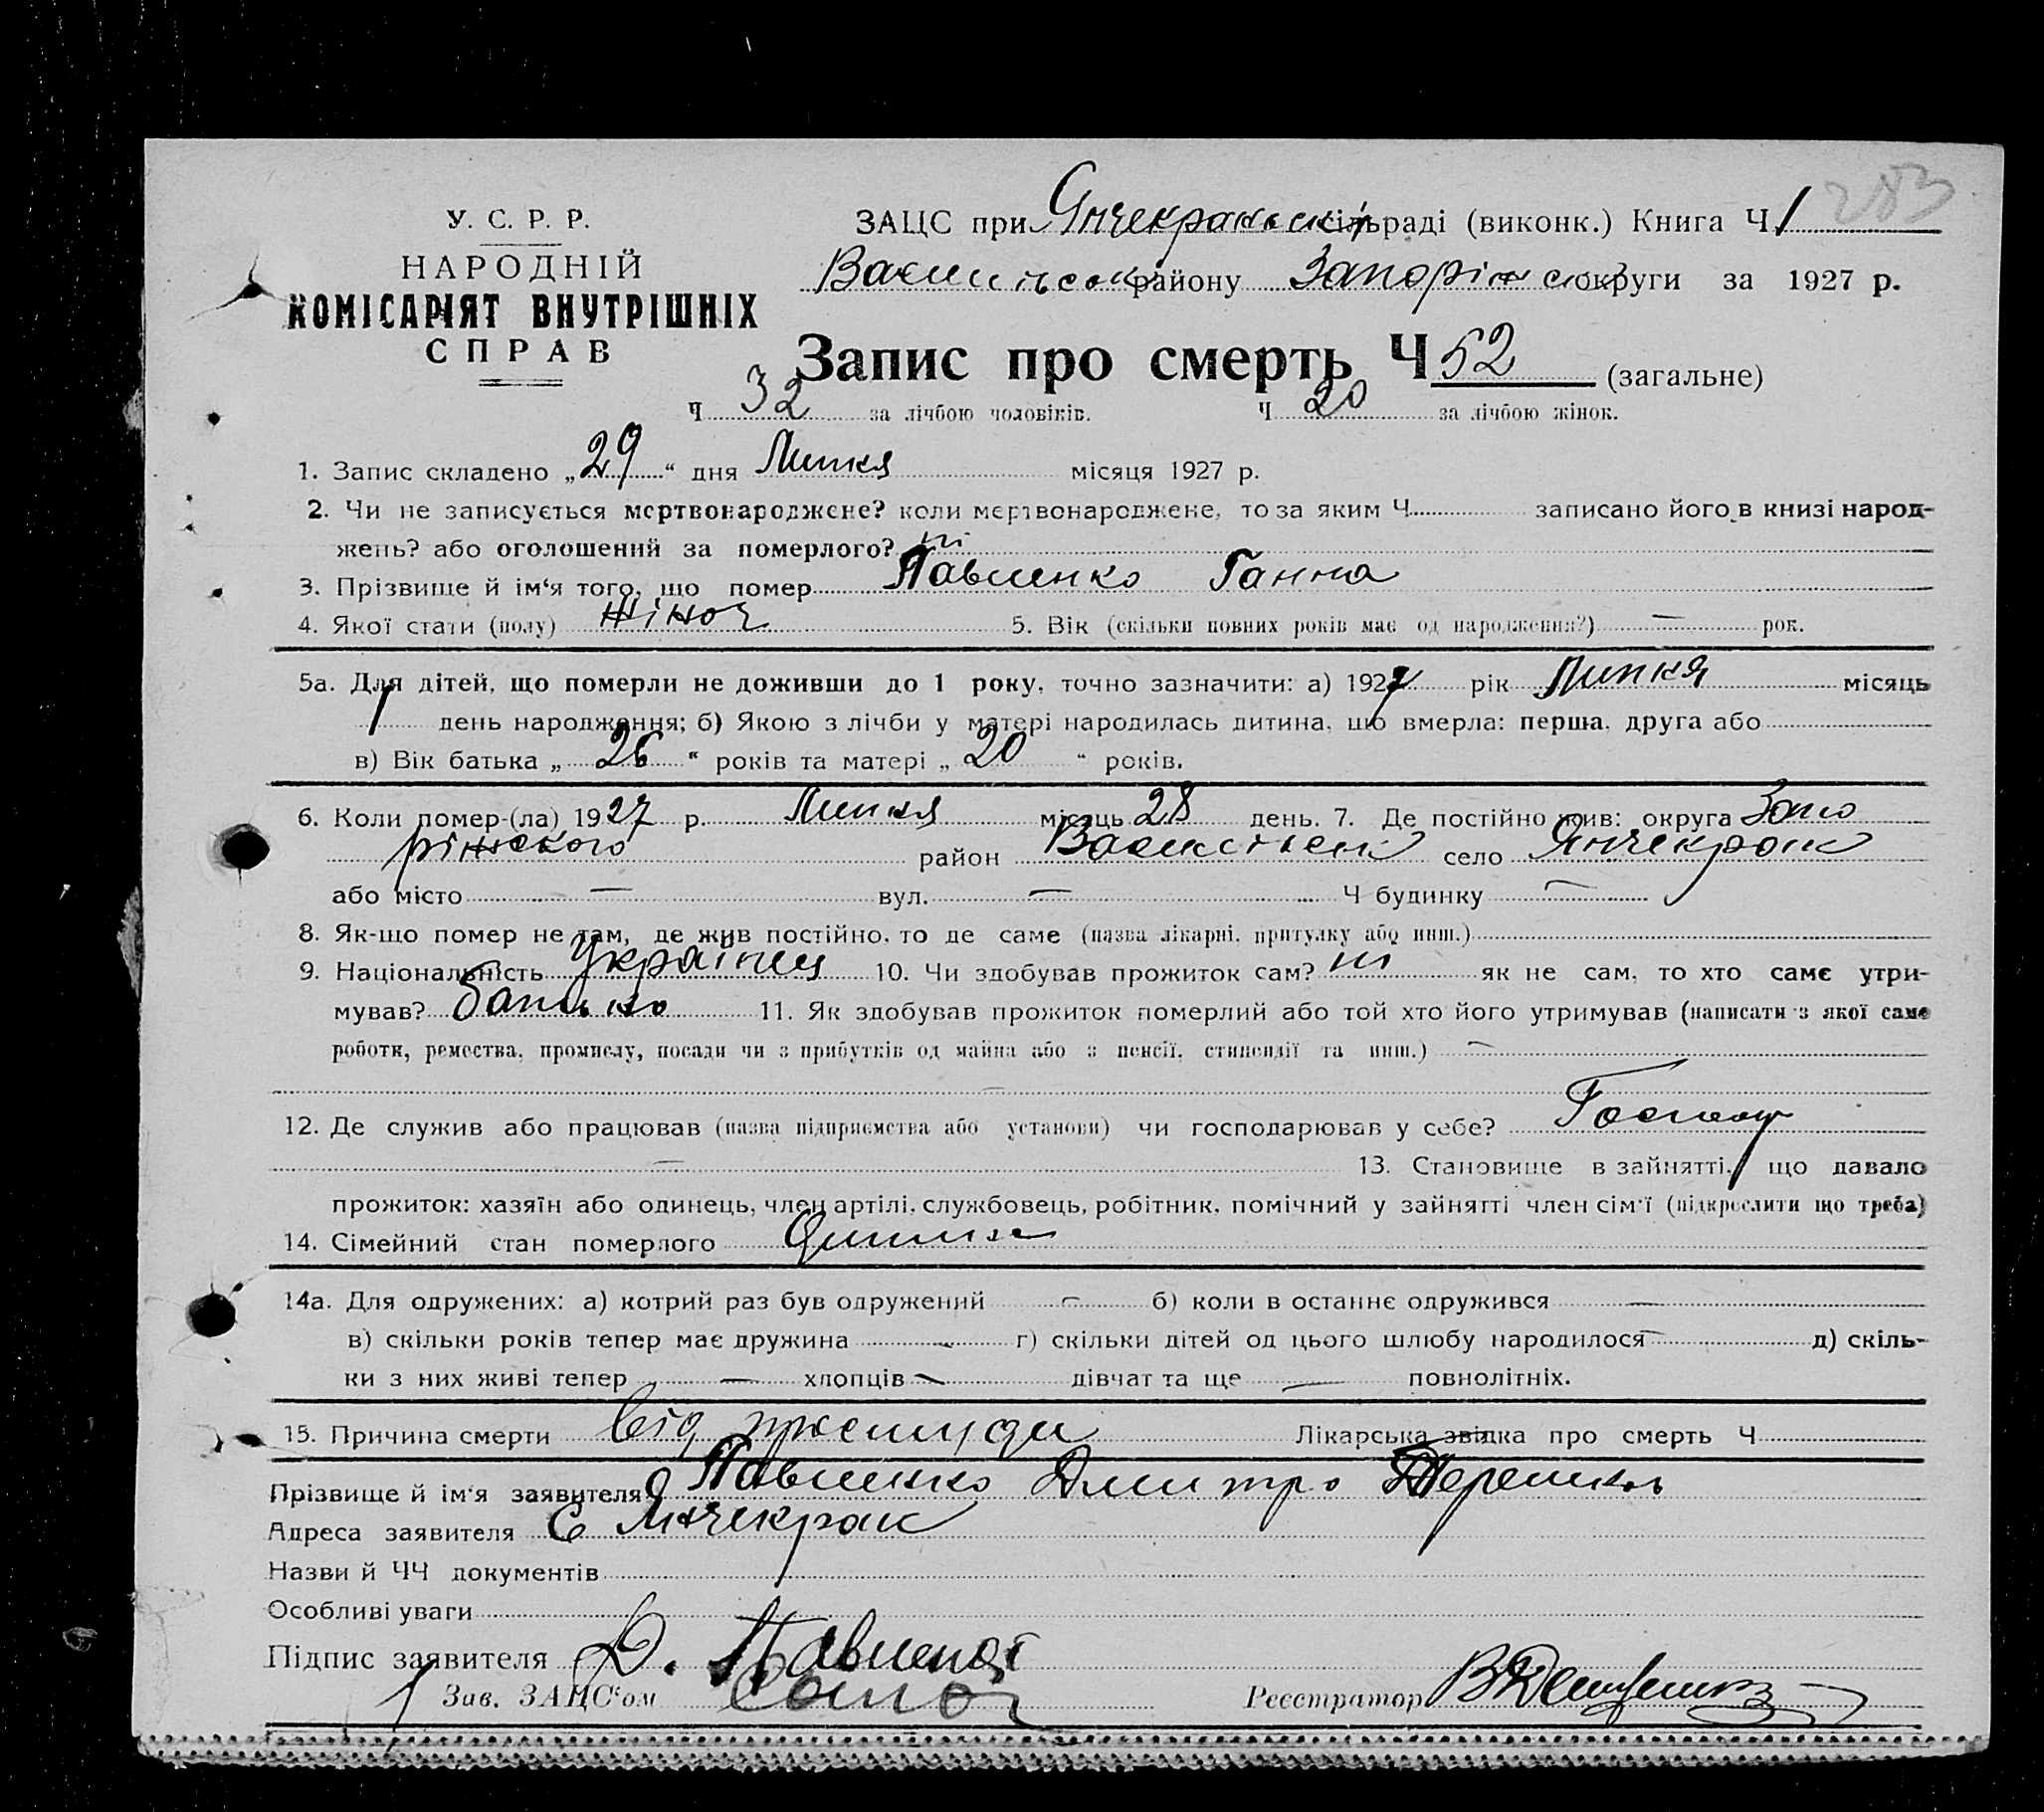 283
У. С. Р. Р.
НАРОДНІЙ
КОМІСАРІЯТ ВНУТРІШНІХ
СПРАВ
ЗАЦС при Янчекракській сільраді (виконк.) Книга Ч. 1
Василівськ району Запоріж округи за 1927 р.
Запис про смерть Ч 52 (загальне)
Ч 32 за лічбою чоловіків. Ч 20 за лічбою жінок.
1. Запис складено „29“ дня Липня місяця 1927 р.
2. Чи не записується мертвонароджене? коли мертвонароджене, то за яким Ч. записано його в книзі народ-
жень? або оголошений за померлого? ні
3. Прізвище й ім‘я того, що помер Павленко Ганна
4. Якої стати (полу) жіноч 5. Вік (скільки повних років має од народження?) — рок.
5а. Для дітей, що померли не доживши до 1 року, точно зазначити: а) 1927 рік Липня місяць
1 день народження; б) Якою з лічби у матері народилась дитина, що вмерла: перша, друга або
в) Вік батька „26“ років та матері „20“ років.
6. Коли помер-(ла) 1927 р. Липня місяць 28 день. 7. Де постійно жив: округа Запо
ріжського район село Янчекрак
або місто — вул. — Ч будинку —
8. Як-що помер не там, де жив постійно, то де саме (назва лікарні, притулку або инш.)
9. Національність Українец 10. Чи здобував прожиток сам? ні як не сам, то хто саме утри-
мував? батько 11. Як здобував прожиток померлий або той хто його утримував (написати з якої саме
роботи, ремества, промислу, посади чи з прибутків од майна або з пенсії, стипендії та инш.) —
—
12. Де служив або працював (назва підприємства або установи) чи господарював у себе? Господ
— 13. Становище в зайнятті, що давало
прожиток: хазяїн або одинець, член артілі, службовець, робітник, помічний у зайнятті член сім‘ї (підкреслити що треба)
14. Сімейний стан померлого
14а. Для одружених: а) котрий раз був одружений — б) коли в останнє одружився —
в) скільки років тепер має дружина — г) скільки дітей од цього шлюбу народилося — д) скіль-
ки з них живі тепер — хлопців — дівчат та ще — повнолітніх.
15. Причина смерти від простуди Лікарська звідка про смерть Ч
Прізвище й ім‘я заявителя Павленко Дмитро
Адреса заявителя С Янчекрак
Назви й ЧЧ документів
Особливі уваги
Підпис заявителя Д. Павленко
Зав. ЗАЦС‘ом
Реєстратор